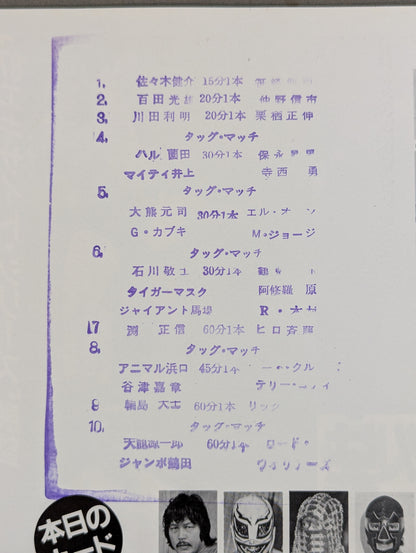 1. 佐々木健介 15分1本
2. 百田光雄 20分1本 仲野信市
3. 川田利明 20分1本 栗栖正伸
4. タッグ・マッチ
ハル薗田 30分1本 保永昇男
マイティ井上 寺西 勇
5. タッグ・マッチ
大熊元司 30分1本 エル・
G・カブキ M・ジョージ
6. タッグ・マッチ
石川敬士 30分1本
タイガーマスク 阿修羅 原
ジャイアント馬場 R・木村
17 渕 正信 60分1本 ヒロ斉藤
8. タッグ・マッチ
アニマル浜口 45分1本
谷津嘉章 テリー・
9 輪島 大士 60分1本 リック
10. タッグ・マッチ
天龍源一郎 60分1本 ロード・
ジャンボ鶴田 ウォリアーズ
本日の
カード